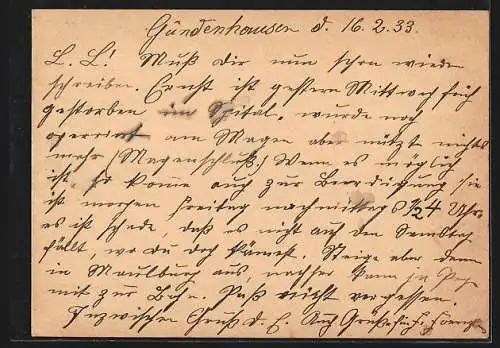 Gündenhausen d. 16.2.33.
L. L! Muß dir nun schon wieder
schreiben. Ernst ist gestern Mittwoch früh
gestorben im Spital. wurde noch
operirt am Magen aber nützt nichts
mehr (Magenschluß) Wenn es möglich
ist so komme auch zur Beerdigung sie
ist morgen Freitag nachmittag 1/2 4 Uhr,
es ist schade, daß es nicht auf den Samstag
fällt, wo du doch kämest. Steige aber dann
in Maulburg aus, nachher kann ja
mit zur Bahn. Paß nicht vergessen.
Inzwischen Gruß d. E. Auch Grüße